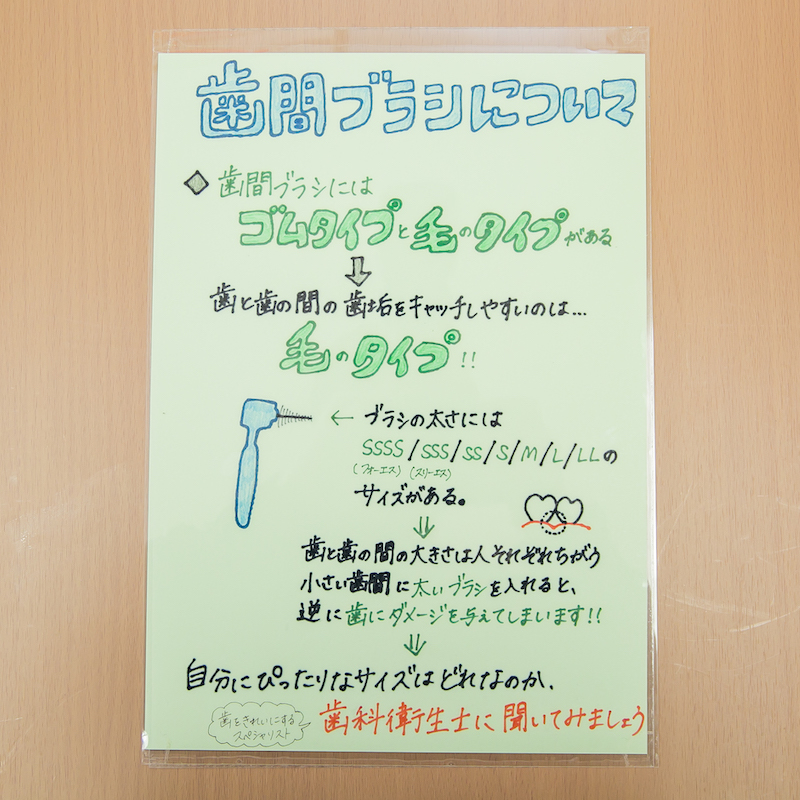 歯間ブラシについて
◇歯間ブラシには
ゴムタイプと毛のタイプがある
⇩
歯と歯の間の歯垢をキャッチしやすいのは...
毛のタイプ!!
← ブラシの太さには
SSSS/SSS/SS/S/M/L/LLの
(フォーエス) (スリーエス)
サイズがある。
⇓
歯と歯の間の大きさは人それぞれちがう
小さい歯間に太いブラシを入れると、
逆に歯にダメージを与えてしまいます!!
⇓
自分にぴったりなサイズはどれなのか、
歯をきれいにする
スペシャリスト
歯科衛生士に聞いてみましょう